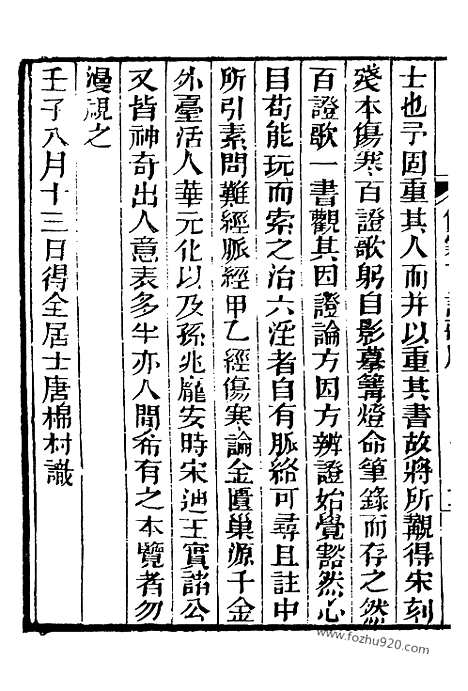 士也予固重其人而并以重其書故將所覯得宋刻
殘本傷寒百證歌躬自影摹篝燈命筆錄而存之然
百證歌一書觀其因證論方因方辨證始覺豁然心
目苟能玩而索之治六淫者自有脈絡可尋且註中
所引素問難經脈經甲乙經傷寒論金匱巢源千金
外臺活人華元化以及孫兆龐安時宋迪王實諸公
又皆神奇出人意表多半亦人間希有之本覽者勿
漫視之
壬子八月十三日得全居士唐棉村識
www.fozhu920.com